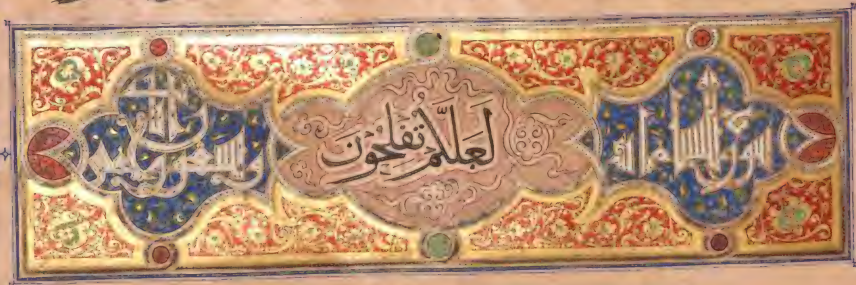 سورة النساء مائة
لَعَلَّكُمْ تُفْلِحُونَ
وسبعون